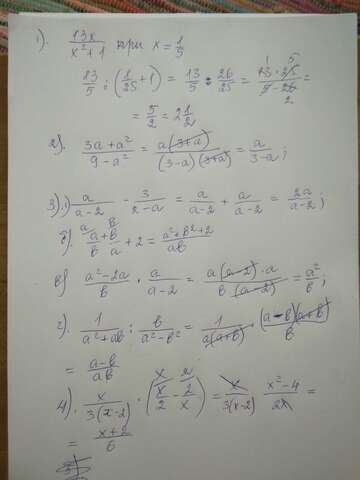 1). 13x/(x²+1) при x = 1/5
13/5 : (1/25 + 1) = 13/5 : 26/25 = (13 · 25)/(5 · 26) =
= 5/2 = 2 1/2
2). (3a+a²)/(9-a²) = a(3+a)/((3-a)(3+a)) = a/(3-a);
3). а) a/(a-2) - 3/(2-a) = a/(a-2) + a/(a-2) = 2a/(a-2);
б). a/b + b/a + 2 = (a²+b²+2)/ab
в) (a²-2a)/b · a/(a-2) = a(a-2)·a/(b(a-2)) = a²/b;
г). 1/(a²+ab) : b/(a²-b²) = 1/(a(a+b)) · (a-b)(a+b)/b
= (a-b)/ab
4). x/(3(x-2)) · (x/2 - 2/x) = x/(3(x-2)) · (x²-4)/2x =
= (x+2)/6